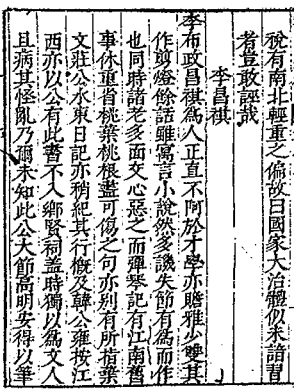 稅有南北輕重之偏故曰國家大治體似未諳習
者豈敢誣哉
李昌祺
李布政昌祺爲人正直不阿於才學亦贍雅少雙其
作剪燈餘語雖寓言小說然多譏失節有爲而作
也同時諸老多面交心惡之而彈琴記有江南舊
事休重省桃葉桃根盡可傷之句亦別有所指葉
文莊公水東日記亦稍紀其行概及韓公雍按江
西亦以公有此書不入鄉賢祠盖時獨以爲文人
且病其怪亂乃爾未知此公大節高明安得以筆